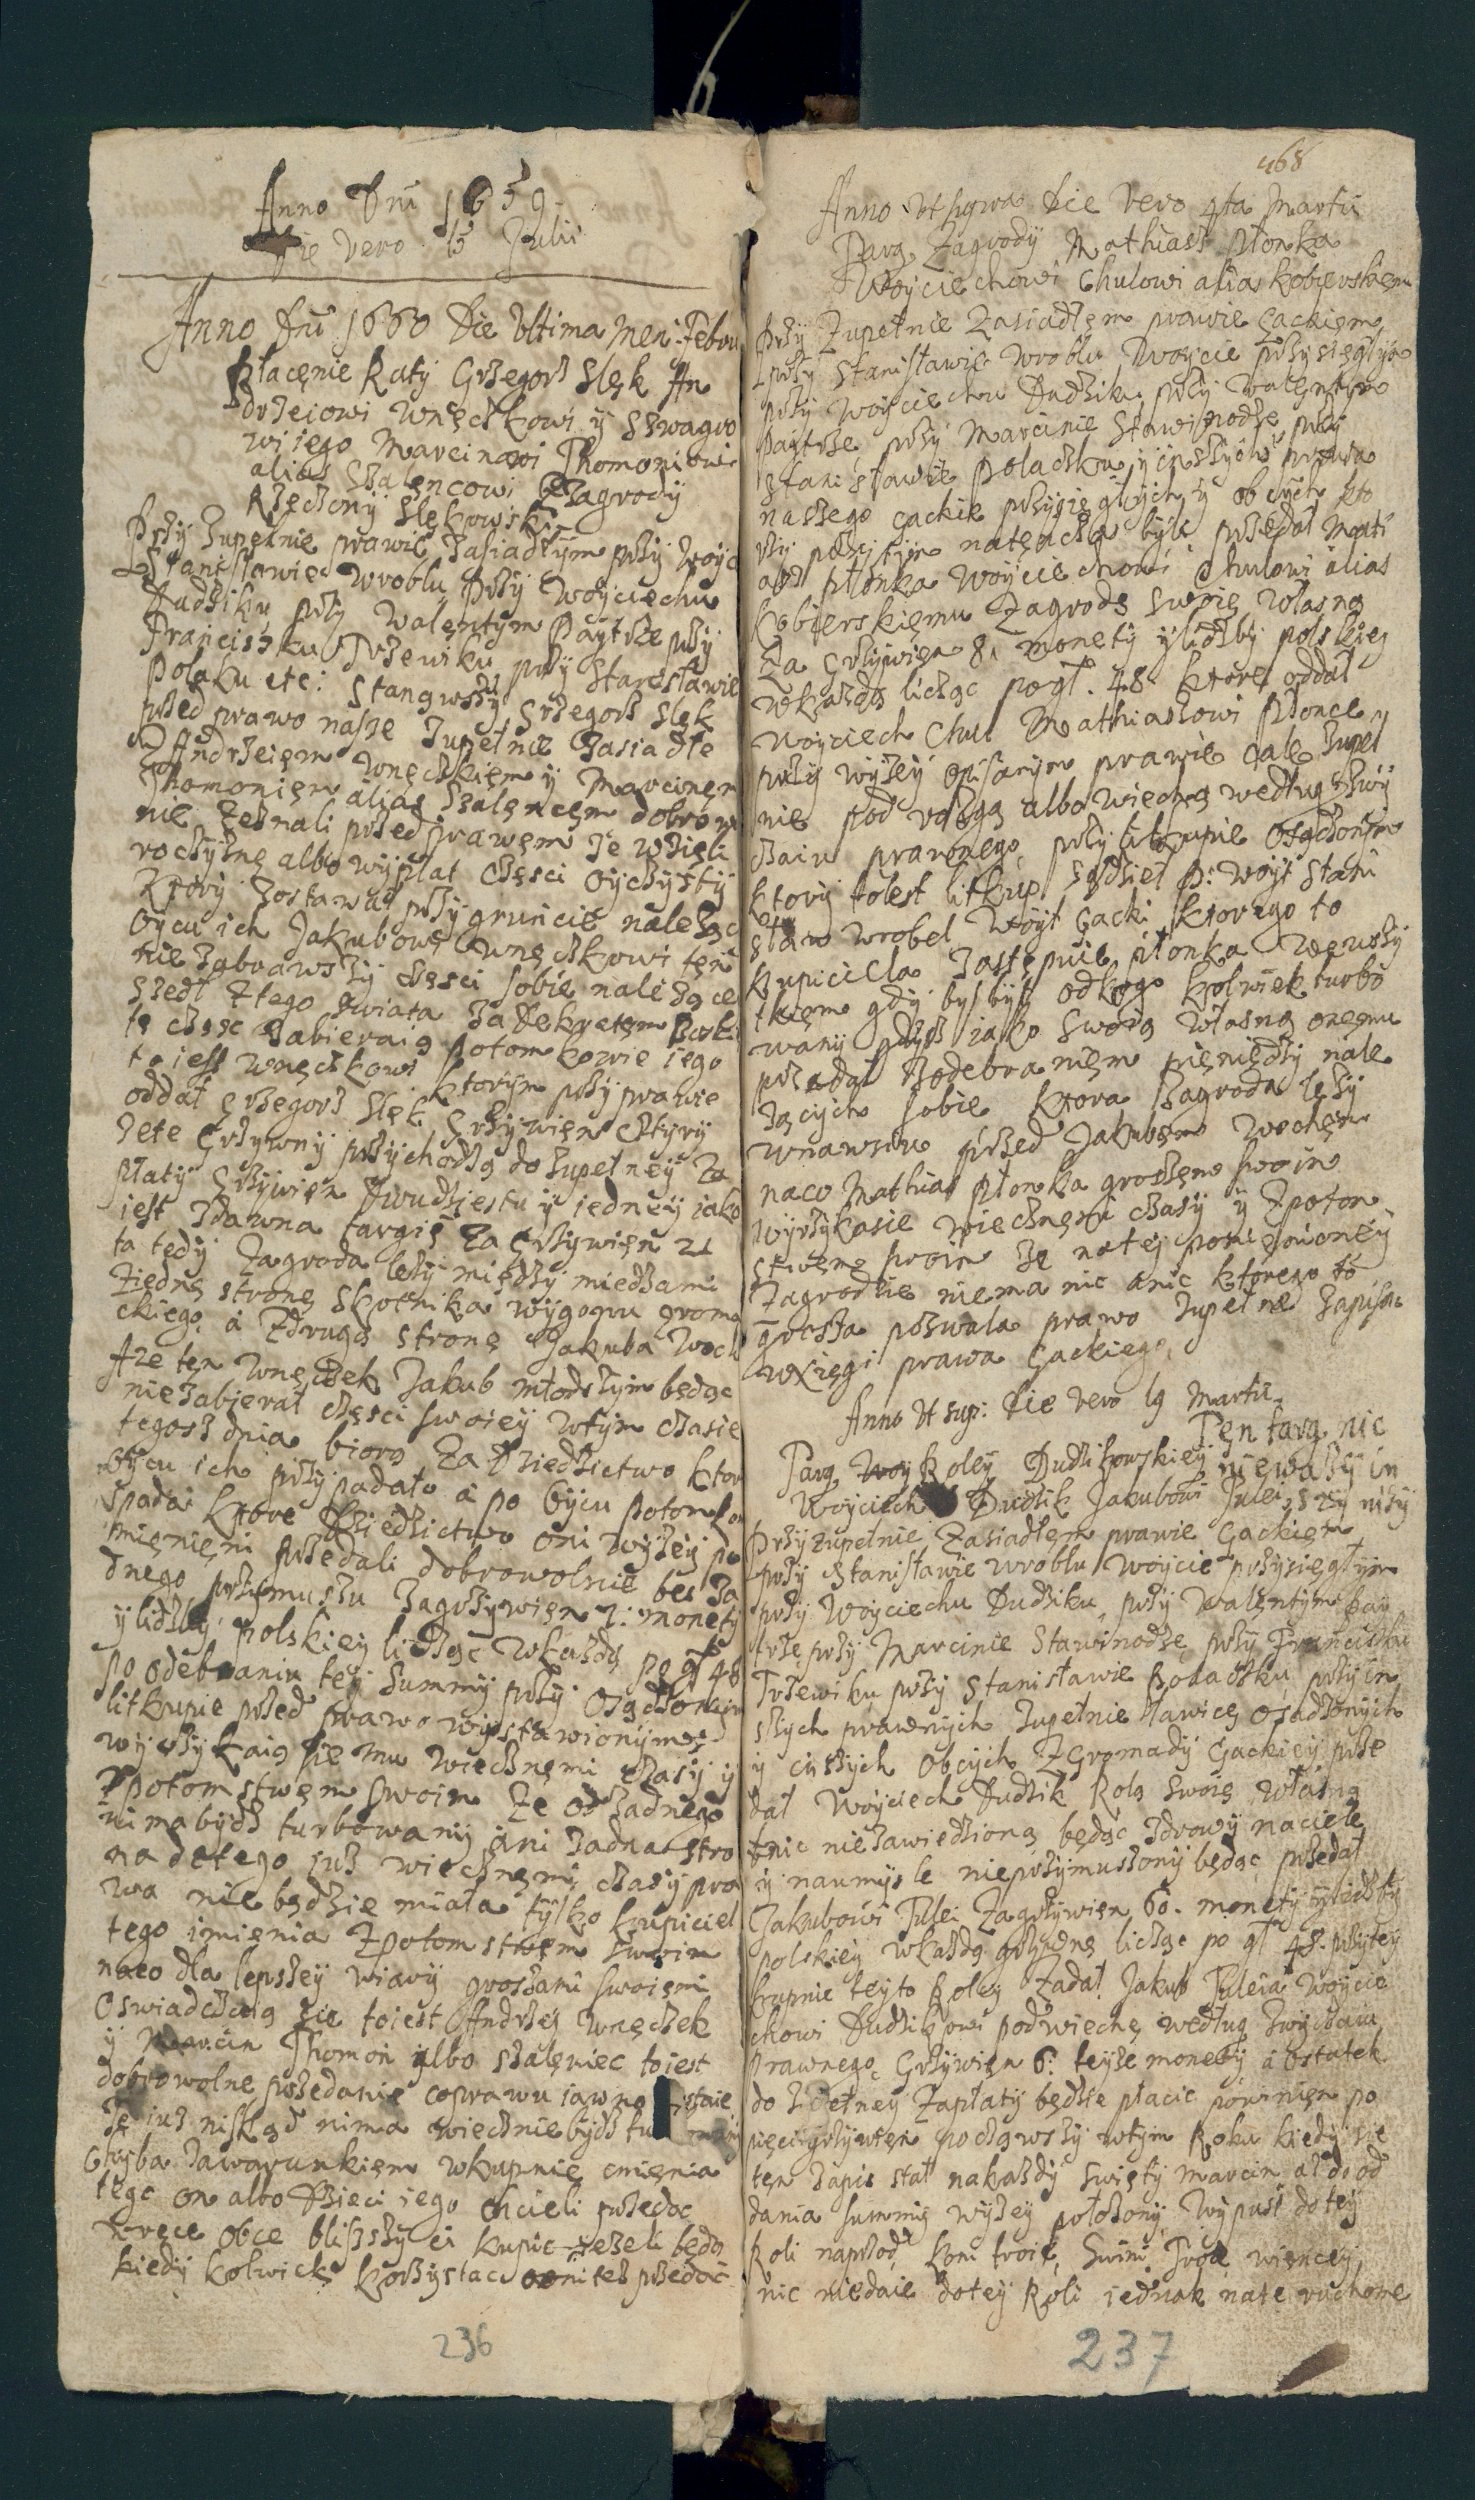 Anno Dni 1659
Die vero 15 Julii
Anno Dni 1660 Die Ultima Men: Febru
Płacęnie Raty Grzegorz Slęk An
drzeiowi Wnęczkowi y Szwagro
wi iego Marcinowi Thomoniowi
alias Szalęncowi Zagrody
Rzeczony Slękowski
Przy Zupełnie prawie Zasiadłym przy Woyc
Stanisławie Wroblu Przy Woyciechu
Dudziku przy Walęntym Paytrze przy
Franciszku Trzewiku przy Stanisławie
Polaku etc: Stanąwszy Grzegorz Slęk
przed prawo nasze Zupełnie Zasiadłe
Z Andrzeięm Wnęczkięm y Marcinęm
Thomonięm alias Szalęncęm dobrow
nie Zeznali przed prawęm Ze wzięli
roczyznę albo wypłat częsci oyczysty
Ktory Zostawał przy gruncie należąc
Oycu ich Jakubowi Wnęczkowi tęn
nie Zabrawszy częsci sobie należące
szedł Ztego swiata Za Dekretęm Boski
tę częsc Zabieraią Potomkowie iego
to iest Wnęczkowi Ktorym przy prawie
oddał Grzegorz Slęk Grzywięn cztyry
Zete Grzywny przychodzą do Zupełney Za
płaty Grzywięn Dwudziestu y iedney iako
iest Zdawna targię Za Grzywięn 21
ta tedy Zagroda leży między miedzami
Ziednę stronę Skotnika wygonu groma
ckiego, a Zdrugą stronę Jakuba Woch
Aze tęn Wnęczek Jakub młodszym będąc
nie Zabierał częsci swoiey wtym czasie
tegosz dnia biorą Za Dziedzictwo ktor
oycu ich przypadało a po oycu potomkom
spada: Ktore Dziedzictwo oni wyżey po
mięnięni przedali dobrowolnie bes Za
dnego przymuszu Zagrzywięn 2: monety
y lidzby polskiey licząc wkażdą po gł 48
Po odebraniu tey Summy przy osądzonym
litkupie przed prawo wystawionymes
wyrzykaią sie mu wiecznęmi czasy y
Zpotomstwęm swoim Ze od Zadnego
nima bydz turbowany ani Zadna stro
na detego już wiecznęmi czasy pra
wa nie będzie miała tylko kupiciel
tego imięnia Zpotomstwęm swoim
naco dla lepszey wiary groszami swoięmi
Oswiadczaią sie toiest Andrzey Wnęczek
y Marcin Thomon albo Szalęniec toiest
dobrowolne przedanie coprawu iawno
Ze iuz niskąd nima wiecznie bydz
Chyba Zawarunkięm wkupnię imięnia
tego on albo Dzieci iego chcieli przedac
wręce obce bliższy ei kupic jezeli będą
kiedy kolwick korzystac oniteż przedać
236
468
Anno Ut supra Die Vero 4ta Martii
Targ Zagrody Mathiasz Płonka
Woyciechowi Chulowi alias Kobierskięmu
Przy Zupełnie Zasiadłęm prawie Gackięm
przy Stanisławie Wroblu Woycie przysięgłym
przy Woyciechu Dudziku, przy Walęntym
Paytrze przy Marcinie Stawinodze przy
Stanisławie Polaczku y inszych prawa
naszego Gackie przysięgłych y obcych kto
rzy przytym natęnczas byli przedał Mati
asz Płonka Woyciechowi Chulowi alias
Kobierskięmu Zagrodę swoię własną
Za Grzywięn 8. monety y lidzby polskiey
wkażdą licząc po gł. 48 ktore oddał
Woyciech Chul Mathiaszowi Płonce
przy wyżey opisanym prawie całe Zupeł
nie pod rózgą albo wiechą według zwy
czaiu prawnego, przy litkupie osądzonym
ktory tolest litkup sądził P: Woyt Stani
sław Wrobel Woyt Gacki ktorego to
kupiciela Zastępuie Płonka wewszy
tkięm gdy by był odkogo kolwiek turbo
wany gdysz iako swoią własną onęmu
przedał Zodebranięm pięniędzy nale
zących sobie ktora Zagroda leży
wnawsiu przed Jakubęm Wochęm
naco Mathias Płonka groszęm swoim
wyrzykasie wiecznęmi czasy y Zpotom
stwęm swoim że natey pomięnioney
Zagrodzie niema nic anic ktorego to
grosza pozwala prawo Zupełne Zapisac
wxięgi prawa Gackiego
Anno Ut sup: Die Vero 19 Martii
Tęn targ nic
nieważy in
szy niży
Targ Roley Dudzikowskiey
Woyciech Dudzik Jakubowi Julei
Przy zupełnie Zasiadłęm prawie Gackięm
przy Stanisławie Wroblu Woycie przysięgłym
przy Woyciechu Dudziku, przy Walęntym Pay
trze przy Marcinie Stawinodze, przy Franciszku
Trzewiku przy Stanisławie Polaczku, przy in
szych prawnych Zupełnie ławicę osadzonych
y inszych obcych Zgromady Gackiey prze
dał Woyciech Dudzik Rolą swoię własną
wnic niezawiedzioną będąc Zdrowy naciele
y naumysle nieprzymuszony będąc przedał
Jakubowi Julei Zagrzywięn 60. monety ylidzby
polskiey wkażdą grzywnę licząc po gł 48. przytey
kupnie teyto Roley Zadał Jakub Juleia Woycie
chowi Dudzikowi podwiechę według Zwyczaiu
Prawnego, Grzywięn 6: teyże monety a ostatek
do Zupełney Zapłaty będzie płacic powinięn po
pięci grzywięn począwszy wtym Roku kiedy sie
tęn Zapis stał nakażdy swięty Marcin aż do od
dania summy wyżey położony Wypust dotey
Roli naprzod koni troie, Swini Troie więncey
nic niedaie dotey Roli iednak nate ruchome
237